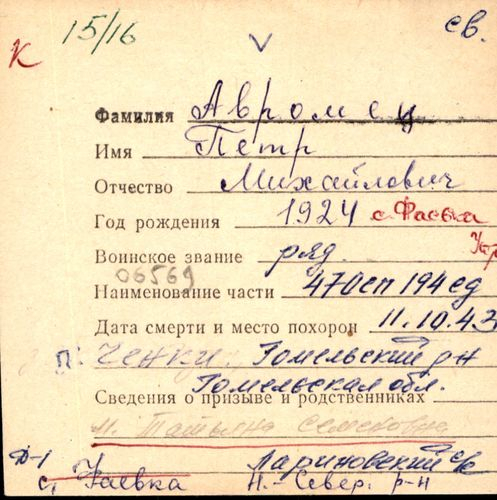 15/16 св.
К
Фамилия Авромец
Имя Петр
Отчество Михайлович
Год рождения 1924 с. Фаевка
Воинское звание ряд.
06569
Наименование части 470сп 194 сд
Дата смерти и место похорон 11.10.43
Ченки, Гомельский р-н
Гомельская обл.
Сведения о призыве и родственниках
м. Татьяна Семеновна
Д-1 Лариновский с/с
с. Фаевка Н.-Север. р-н